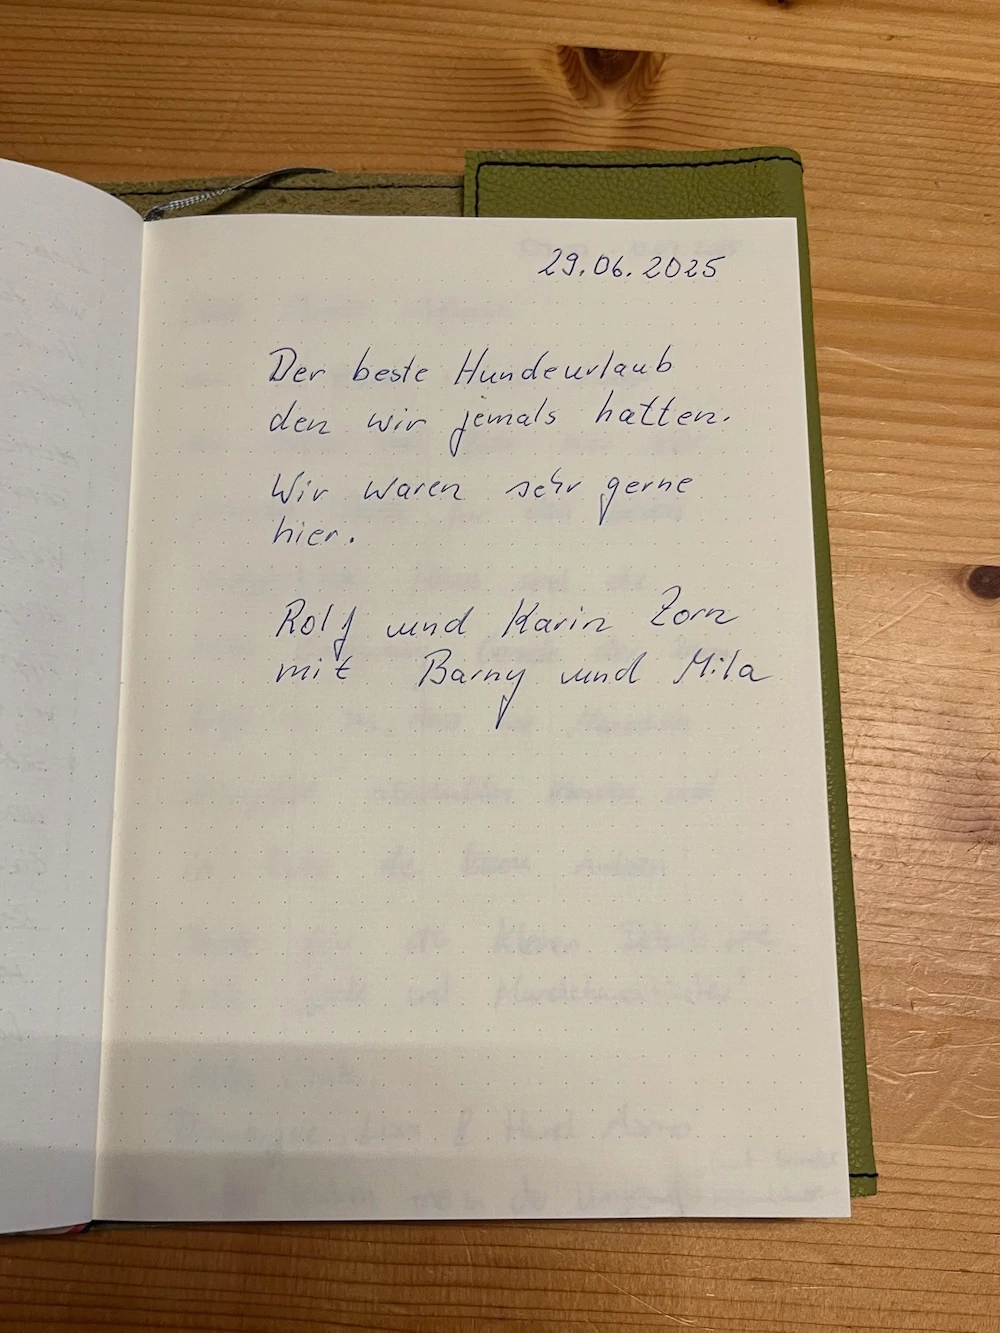 29.06.2025
Der beste Hundeurlaub
den wir jemals hatten.
Wir waren sehr gerne
hier.
Rolf und Karin Zorn
mit Barny und Mila